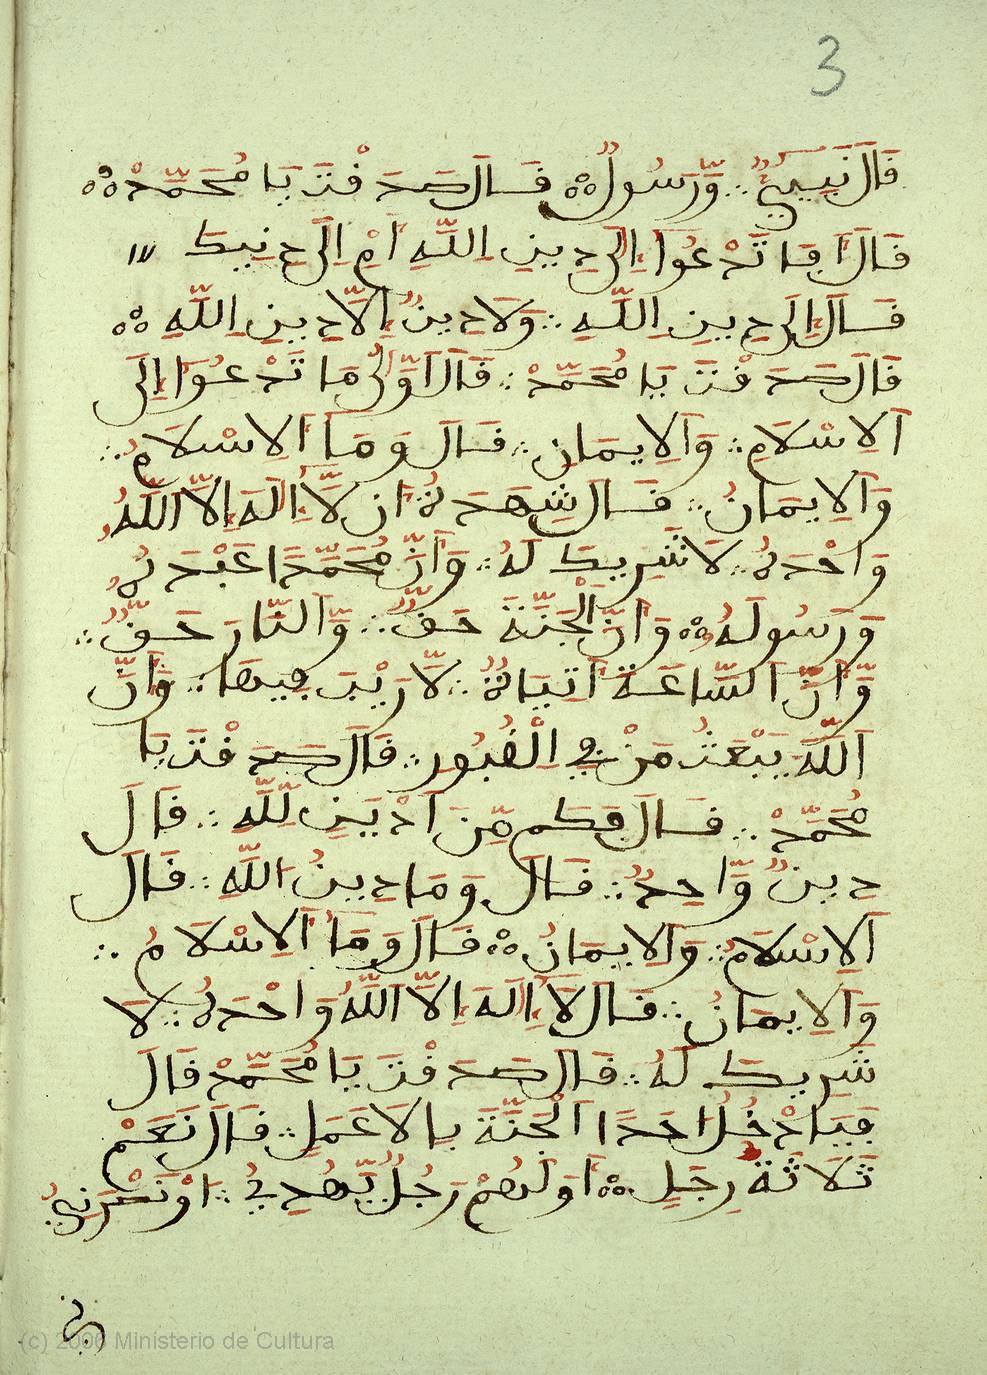 3
قَالَ نَبِيٌّ وَّرَسُولٌ قَالَ صَدَقْتَ يَا مُحَمَّدْ
قَالَ اَفِمَا تَدْعُوا اِلَى دِينِ اِللَّهِ اَمْ اِلَى دِنِيكَ
قَالَ اِلَى دِينِ اِللَّهِ وَلَا دِينٌ اِلَّا دِينِ اِللَّهِ
قَالَ صَدَقْتَ يَا مُحَمَّدْ قَالَ اَوَّلُ مَا تَدْعُوا اِلَى
اَلِاسْلَامِ وَاَلِايمَانِ قَالَ وَمَا اَلِاسْلَامُ
وَاَلِايمَانُ قَالَ شِهَدَةُ اَن لَّا اِلَهَ اِلَّا اَللَّهُ
وَاحْدَهُ لَا شَرِيكَ لَهُ وَاَنَّ مُحَمَّدًا عَبْدَهُ
وَرَسُولَهُ وَاَنَّ الْجَنَّةَ حَقٌّ وَّالنَّارَ حَقٌّ
وَّاَنَّ اَلسَّاعَةَ اَتِيَاةٌ لَّا رَيْبَ فِيهَا وَاَنَّ
اَللَّهَ يَبْعَثُ مَنْ فِي اِلْقُبُورِ قَالَ صَدَقْتَ يَا
مُحَمَّدْ قَالَ فِكَم مِّنَ اَدْيَنِ لِلَّهِ قَالَ
دِينٌ وَّاحِدٌ قَالَ وَمَا دِينُ اَللَّهِ قَالَ
اَلِاسْلَامُ وَاَلِايمَانُ قَالَ وَمَا اَلِاسْلَامُ
وَاَلِايمَانُ قَالَ لَا اِلَهَ اِلَّا اَللَّهُ وَاحْدَهُ لَا
شَرِيكَ لَهُ قَالَ صَدَقْتَ يَا مُحَمَّدْ قَالَ
فَيَادْخُلُ اَحَدًا اَلْجَنَّةَ بِالَاعَمَلِ قَالَ نَعَمْ
ثَلَاثَةَ رِجَلٍ اَوَلُهُمْ رَجُلٌ يَّهُدِيُّ اَوْ نَصْرَنِيُّ
(c) 2006 Ministerio de Cultura